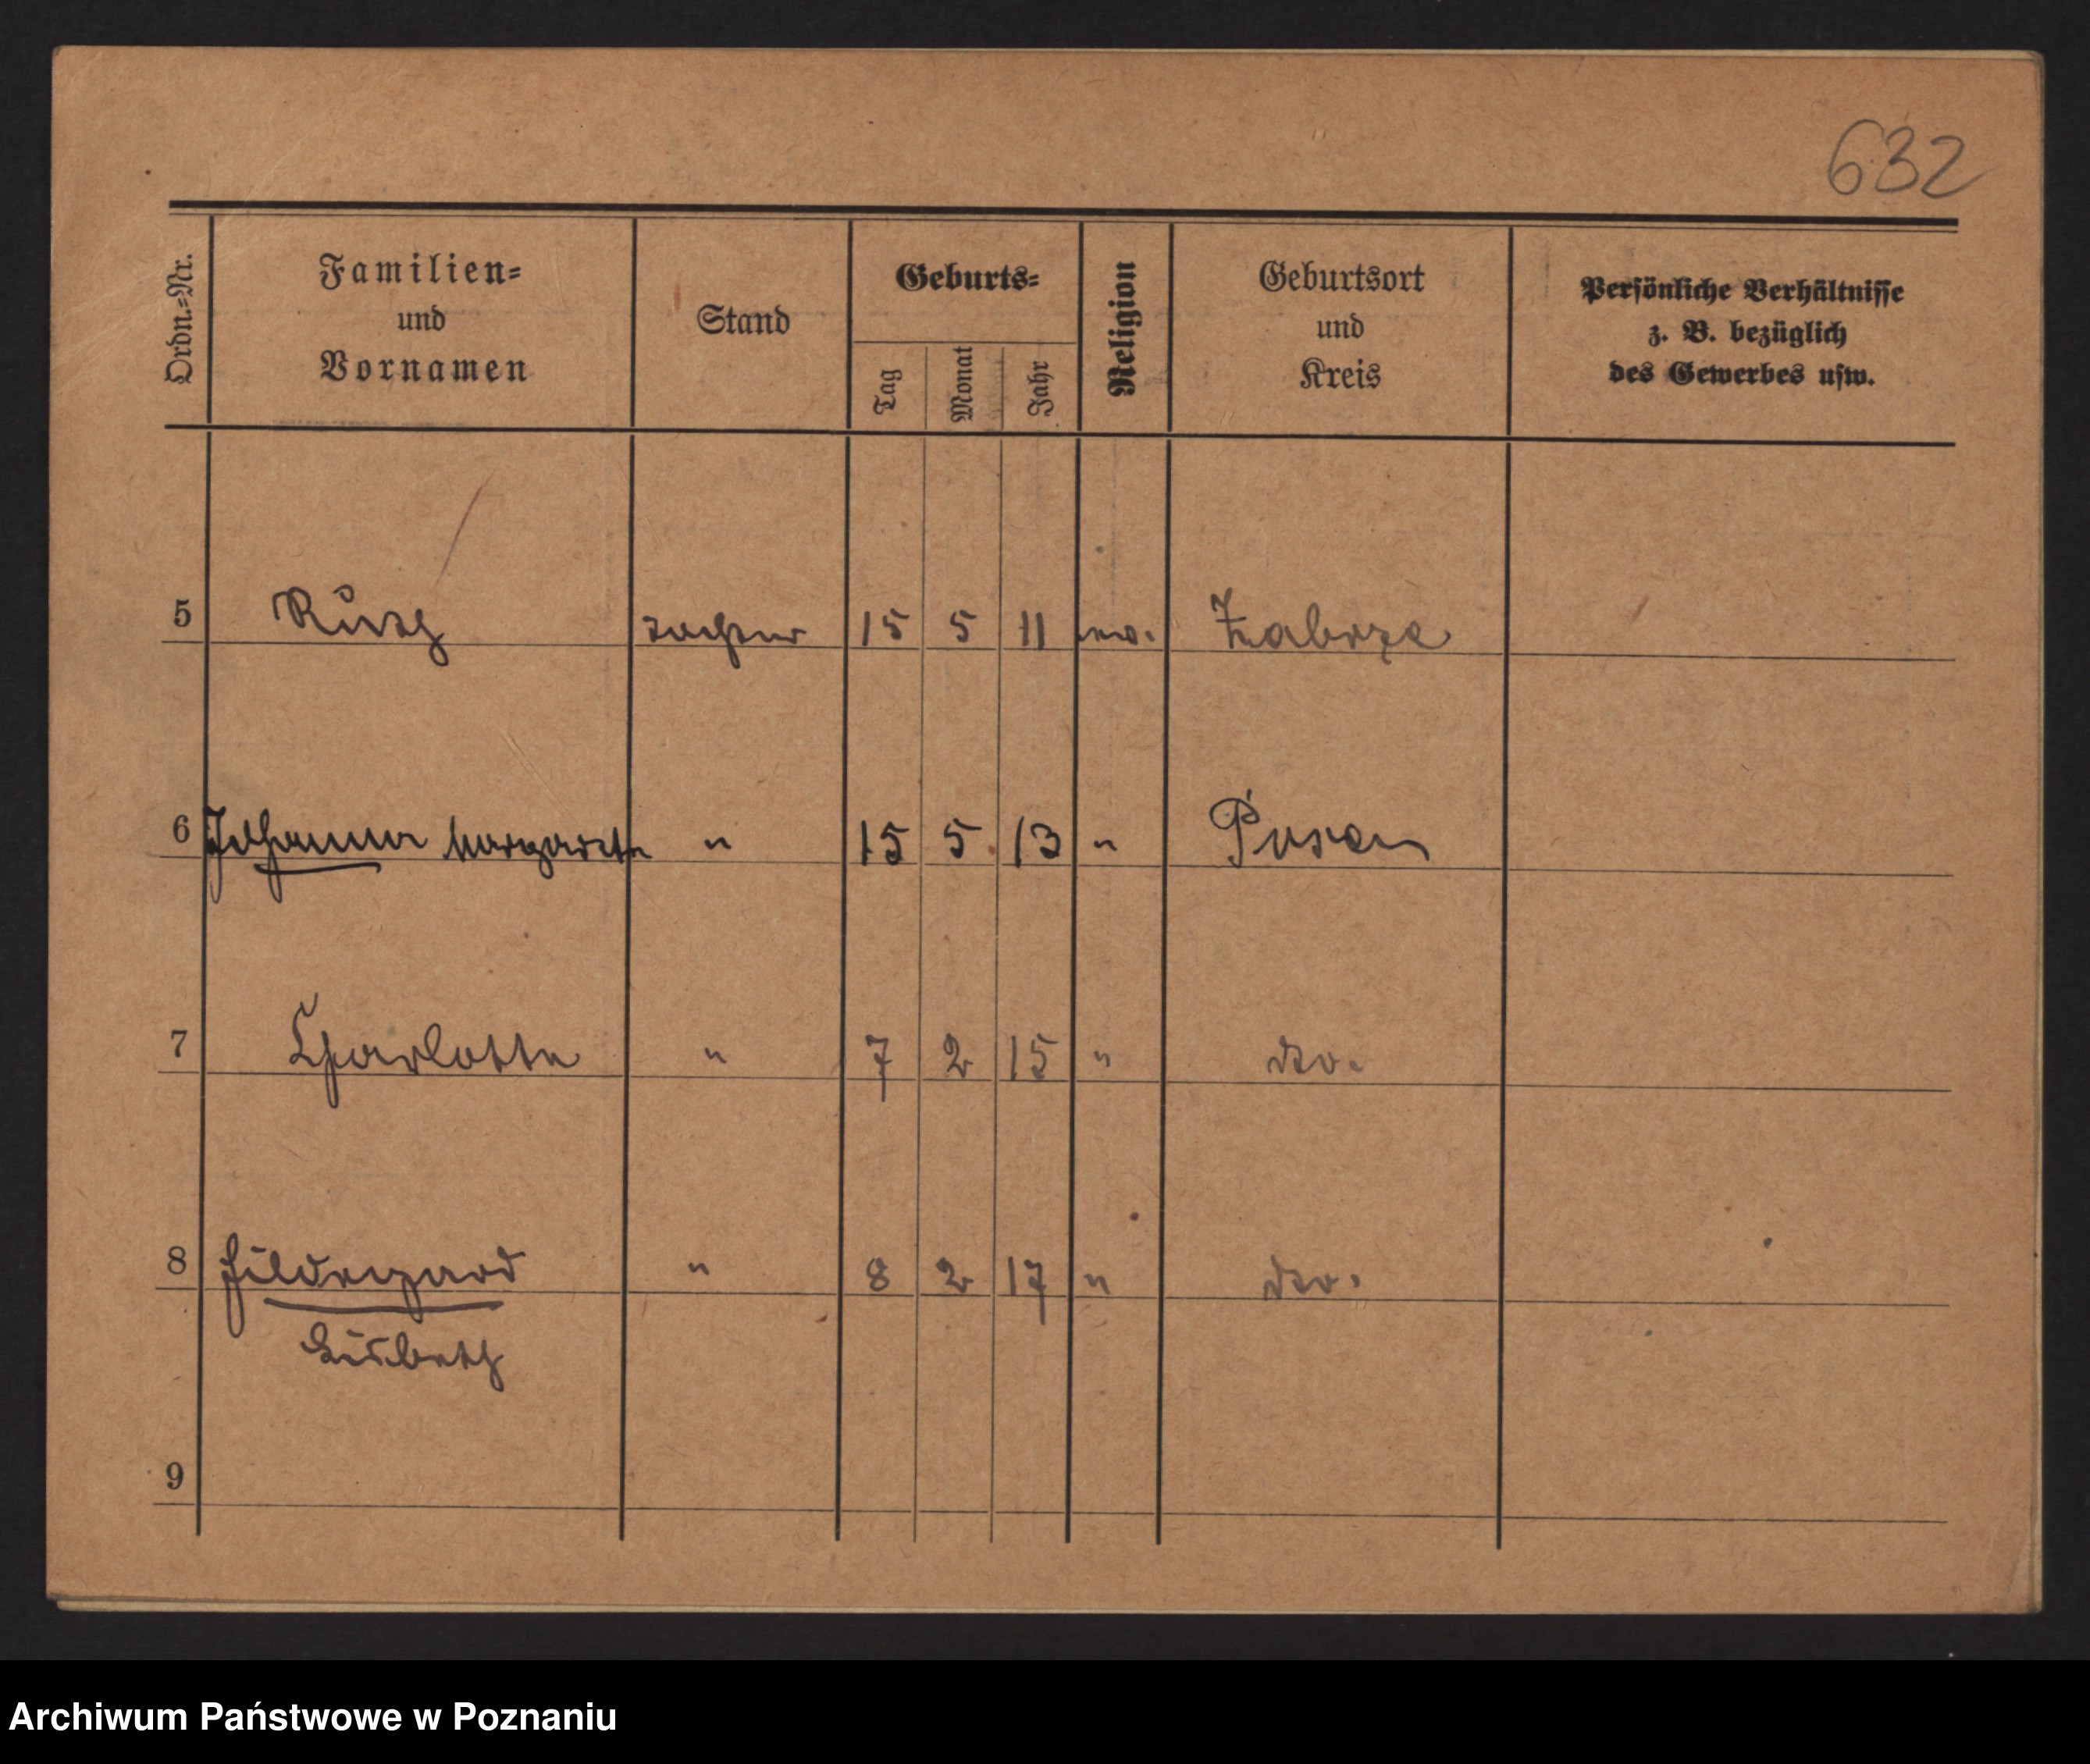 632
Ordn.=Nr.
Familien=
und
Vornamen
Stand
Geburts=
Tag
Monat
Jahr
Religion
Geburtsort
und
Kreis
Persönliche Verhältnisse
z. B. bezüglich
des Gewerbes usw.
5 Ruth Tochter 15 5 11 ev. Zabrze
6 Johanna Margarethe " 15 5 13 " Posen
7 Charlotte " 7 2 15 " dto.
8 Hildegard " 8 2 17 " dto.
Lisbeth
9
Archiwum Państwowe w Poznaniu